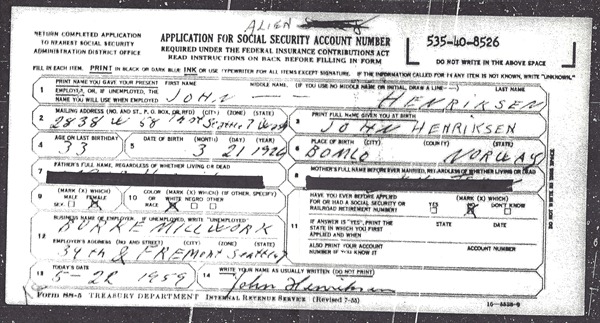 ALIEN
RETURN COMPLETED APPLICATION
TO NEAREST SOCIAL SECURITY
ADMINISTRATION DISTRICT OFFICE
APPLICATION FOR SOCIAL SECURITY ACCOUNT NUMBER
REQUIRED UNDER THE FEDERAL INSURANCE CONTRIBUTIONS ACT
READ INSTRUCTIONS ON BACK BEFORE FILLING IN FORM
535-40-8526
DO NOT WRITE IN THE ABOVE SPACE
FILL IN EACH ITEM. PRINT IN BLACK OR DARK BLUE INK OR USE TYPEWRITER FOR ALL ITEMS EXCEPT SIGNATURE. IF THE INFORMATION CALLED FOR IN ANY ITEM IS NOT KNOWN, WRITE "UNKNOWN."
1 PRINT NAME YOU GAVE YOUR PRESENT EMPLOYER, OR, IF UNEMPLOYED, THE NAME YOU WILL USE WHEN EMPLOYED
FIRST NAME MIDDLE NAME (IF YOU USE NO MIDDLE NAME OR INITIAL, DRAW A LINE—) LAST NAME
JOHN — — HENRIKSEN
2 MAILING ADDRESS (NO. AND ST., P. O. BOX, OR RFD) (CITY) (ZONE) (STATE)
2838 W 58 Seattle 7 Wash
3 PRINT FULL NAME GIVEN YOU AT BIRTH
JOHN HENRIKSEN
4 AGE ON LAST BIRTHDAY
33
5 DATE OF BIRTH (MONTH) (DAY) (YEAR)
3 21 1926
6 PLACE OF BIRTH (CITY) (COUNTY) (STATE)
BOMLO NORWAY
7 FATHER'S FULL NAME, REGARDLESS OF WHETHER LIVING OR DEAD
8 MOTHER'S FULL NAME BEFORE EVER MARRIED, REGARDLESS OF WHETHER LIVING OR DEAD
9 SEX: (MARK (X) WHICH) MALE FEMALE
X
10 COLOR OR RACE (MARK (X) WHICH) (IF OTHER, SPECIFY) WHITE NEGRO OTHER
X
11 HAVE YOU EVER BEFORE APPLIED FOR OR HAD A SOCIAL SECURITY OR RAILROAD RETIREMENT NUMBER?
(MARK (X) WHICH) YES NO DON'T KNOW
X
IF ANSWER IS "YES", PRINT THE STATE IN WHICH YOU FIRST APPLIED AND WHEN
STATE DATE
ALSO PRINT YOUR ACCOUNT NUMBER IF YOU KNOW IT
ACCOUNT NUMBER
12 BUSINESS NAME OF EMPLOYER. IF UNEMPLOYED, WRITE "UNEMPLOYED"
BURKE MILLWORK
EMPLOYER'S ADDRESS (NO. AND STREET) (CITY) (ZONE) (STATE)
34th & FREMONT Seattle
13 TODAY'S DATE
5-22 1959
14 WRITE YOUR NAME AS USUALLY WRITTEN (DO NOT PRINT)
John Henriksen
FORM SS-5 TREASURY DEPARTMENT INTERNAL REVENUE SERVICE (Revised 7-55)
DO NOT WRITE IN THIS SPACE